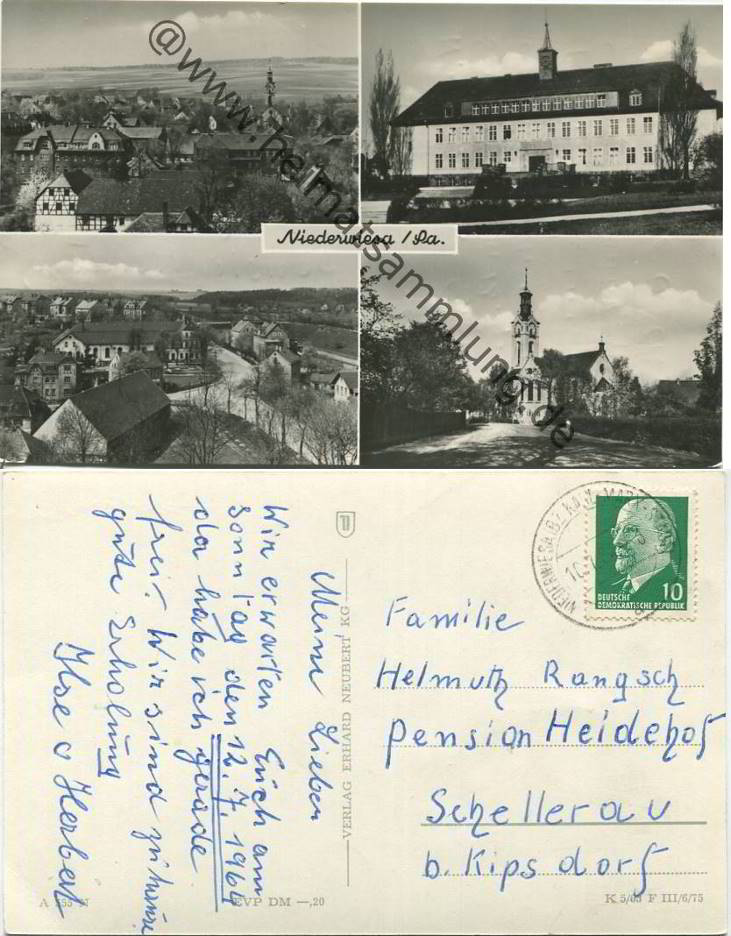 @www.heimatsammlung.de
Niederwiesa /Sa.
Meine Lieben
Wir erwarten Euch am
Sonntag den 12.7.1964
da habe ich gerade
frei. Wir sind zuhause
gute Erholung
Ilse u Herbert
VERLAG ERHARD NEUBERT KG
NIEDERWIESA
10
DEUTSCHE
DEMOKRATISCHE REPUBLIK
Familie
Helmuth Rangsch
Pension Heidehof
Schellerau
b. Kipsdorf
EVP DM —,20
K 5/63 F III/6/75